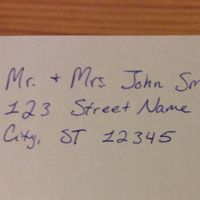 Mr. + Mrs. John Sm
123 Street Name
City, ST 12345